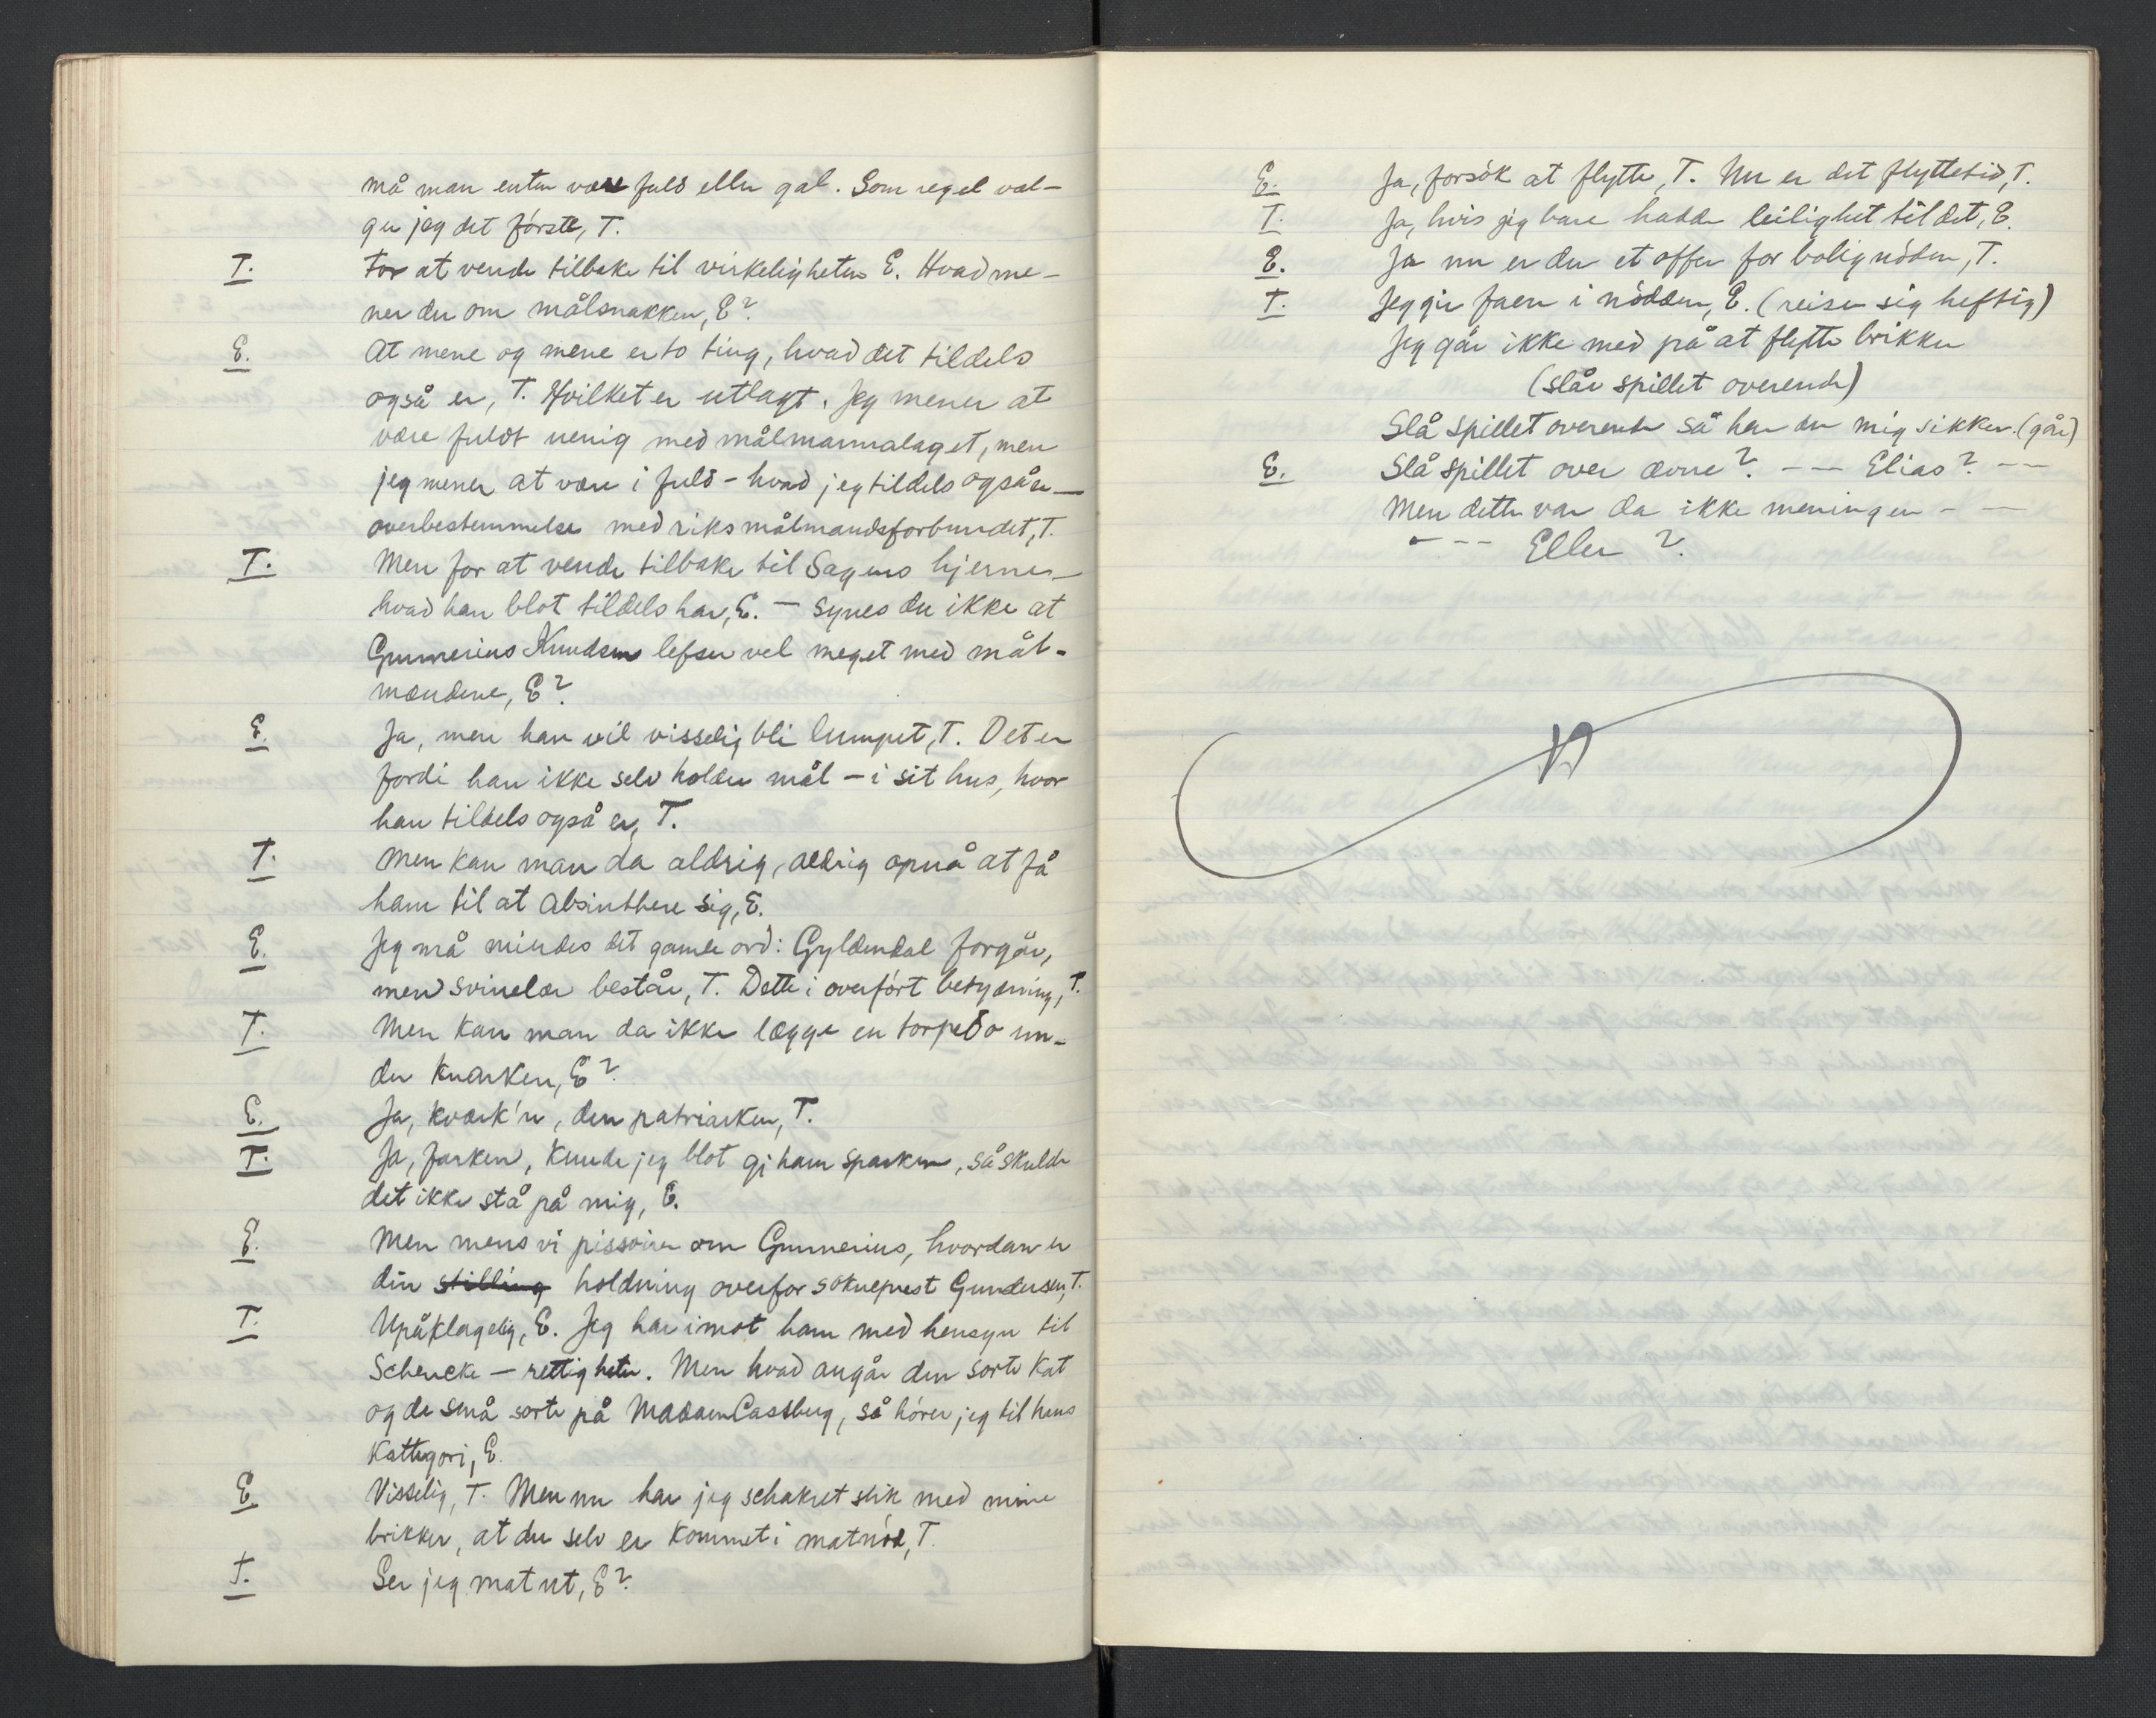 må man enten være fuld eller gal. Som regel væl-
ger jeg det første, T.
T. For at vende tilbake til virkeligheten E. Hvad me-
ner du om målsnakken, E?
E. At mene og mene er to ting, hvad det tildels
også er, T. Hvilket er utlagt. Jeg mener at
være fuldt uenig med målmannalaget, men
jeg mener at være i fuld - hvad jeg tildels også er —
overbestemmelse med riksmålmandsforbundet, T.
T. Men for at vende tilbake til Sagens hjerne —
hvad han blot tildels har, E. — synes du ikke at
Gunnerius Knudsens lefser vel meget med mål-
mændene, E?
E. Ja, men han vil visselig bli lumpet, T. Det er
fordi han ikke selv holder mål — i sit hus, hvor
han tildels også er, T.
T. Men kan man da aldrig, aldrig opnå at få
ham til at absinthere sig, E.
E. Jeg må mindes det gamle ord: Gyldendal forgår,
men svinelær består, T. Dette i overført betydning, T.
T. Men kan man da ikke lægge en torpedo un-
der knarken, E?
E. Ja, kværk'n, den patriarken, T.
T. Ja, farken, kunde jeg blot gi ham sparken, så skulde
det ikke stå på mig, E.
E. Men mens vi pissoirer om Gunnerius, hvordan er
din stilling holdning overfor sokneprest Gundersen, T.
T. Upåklagelig, E. Jeg har imot ham med hensyn til
Schencke — rettigheter. Men hvad angår den sorte kat
og de små sorte på Madam Castberg, så hører jeg til hans
kattegori, E.
E. Visselig, T. Men nu har jeg schakret slik med mine
brikker, at du selv er kommet i matnød, T.
T. Ser jeg mat ut, E?
E. Ja, forsøk at flytte, T. Nu er det flyttetid, T.
T. Ja, hvis jeg bare hadde leilighet til det, E.
E. Ja nu er du et offer for bolignøden, T.
T. Jeg gir faen i nødden, E. (reiser sig heftig)
Jeg går ikke med på at flytte brikker
(slår spillet overende)
Slå spillet overende så har du mig sikker. (går)
E. Slå spillet over ævne? --- Elias? --
Men dette var da ikke meningen - —
--- Eller?